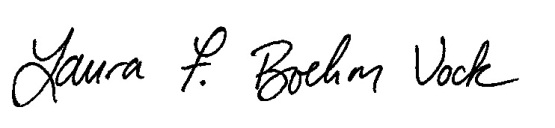 Laura F. Boehm Vock